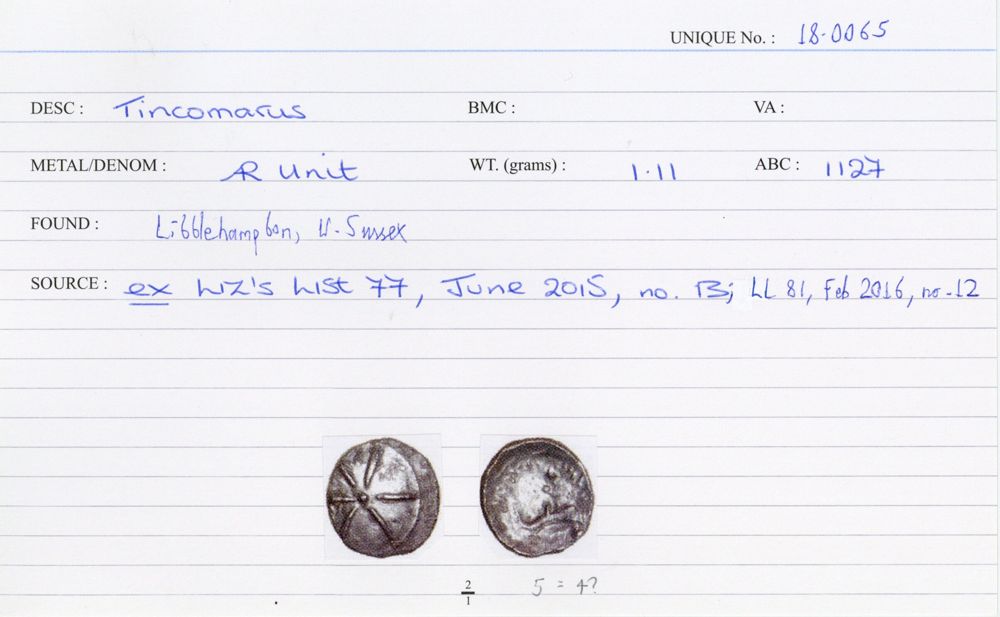 UNIQUE No. : 18-0065
DESC : Tincomarus BMC : VA :
METAL/DENOM : AR Unit WT. (grams) : 1.11 ABC : 1127
FOUND : Littlehampton, W. Sussex
SOURCE : ex Liz's List 77, June 2015, no. 13; LL 81, Feb 2016, no. 12
2
1
5 = 4?